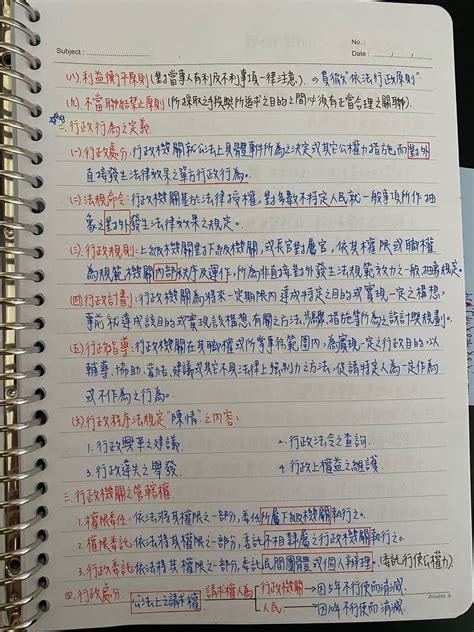 Subject :
No. :
Date : / /
(八). 利益衡平原則(對當事人有利及不利事項一律注意.) ⇒ 貫徹"依法行政原則"
(九). 不當聯結禁止原則(所採取之手段與所追求目的之間必須有正當合理之關聯).
二. 行政行為之定義
(一). 行政處分: 行政機關就公法上具體事件所為之決定或其它公權力措施,而對外
直接發生法律效果之單方行政行為。
(二). 法規命令: 行政機關基於法律授權, 對多數不特定人民就一般事項所作抽
象之對外發生法律效果之規定。
(三). 行政規則: 上級機關對下級機關, 或長官對屬官, 依其權限或職權
為規範機關內部秩序及運作, 所為非直接對外發生法規範效力之一般抽象規定
(四). 行政計劃: 行政機關為將來一定期限內達成特定之目的或實現一定之構想,
事前就達成該目的或實現該構想, 有關之方法, 步驟, 措施等所為之設計與規劃。
(五). 行政指導: 行政機關在其職權或所掌事務範圍內, 為實現一定之行政目的, 以
輔導, 協助, 勸告, 建議或其它不具法律上強制力之方法, 促請特定人為一定作為
或不作為之行為。
(六). 行政程序法規定"陳情"之內容:
1. 行政興革之建議. 2. 行政法令之查詢.
3. 行政違失之舉發. 4. 行政上權益之維護.
三. 行政機關之管轄權
1. 權限委任: 依法將其權限之一部分, 委任所屬下級機關執行之.
2. 權限委託: 依法將其權限之一部分, 委託不相隸屬之行政機關執行之.
3. 行政委託: 依法將其權限之一部分, 委託民間團體或個人辦理. (委託行使公權力)
四. 行政處分. 公法上之請求權 請求權人為 行政機關 → 因5年不行使而消滅.
人民 → 因10年不行使而消滅.
Double A